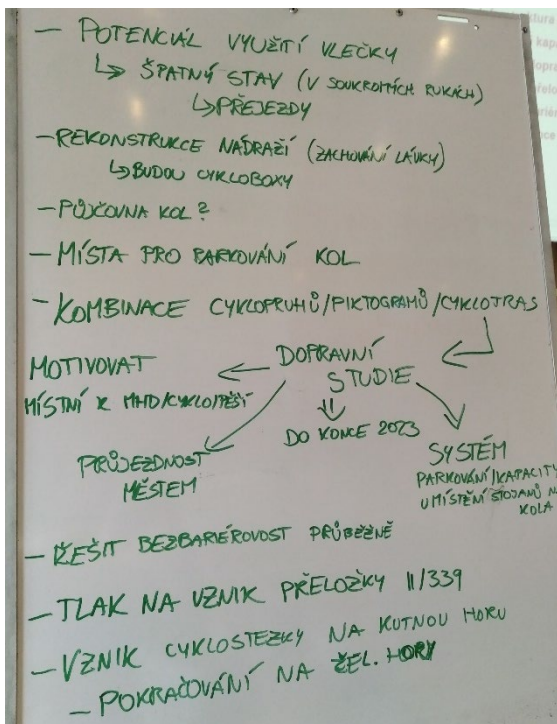 - POTENCIÁL VYUŽITÍ VLEČKY
↳ ŠPATNÝ STAV (V SOUKROMÝCH RUKÁCH)
↳ PŘEJEZDY
- REKONSTRUKCE NÁDRAŽÍ (ZACHOVÁNÍ LÁVKY)
↳ BUDOU CYKLOBOXY
- PŮJČOVNA KOL?
- MÍSTA PRO PARKOVÁNÍ KOL
- KOMBINACE CYKLOPRUHŮ/PIKTOGRAMŮ/CYKLOTRAS
DOPRAVNÍ
STUDIE
MOTIVOVAT
MÍSTNÍ K MHD/CYKLO/PĚŠÍ
DO KONCE 2023
PRŮJEZDNOST
MĚSTEM
SYSTÉM
PARKOVÁNÍ/KAPACITY
UMÍSTĚNÍ STOJANŮ NA
KOLA
- ŘEŠIT BEZBARIÉROVOST PRŮBĚŽNĚ
- TLAK NA VZNIK PŘELOŽKY II/339
- VZNIK CYKLOSTEZKY NA KUTNOU HORU
- POKRAČOVÁNÍ NA ŽEL. HORY